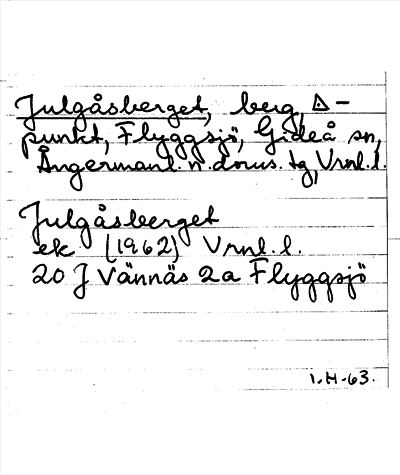 Julgåsberget, berg, △-
punkt, Flyggsjö, Gideå sn,
Ångermanl. n. doms. tg, Vrnl. l.
Julgåsberget
ek (1962) Vrnl. l.
20 J Vännäs 2a Flyggsjö
I.H-63.